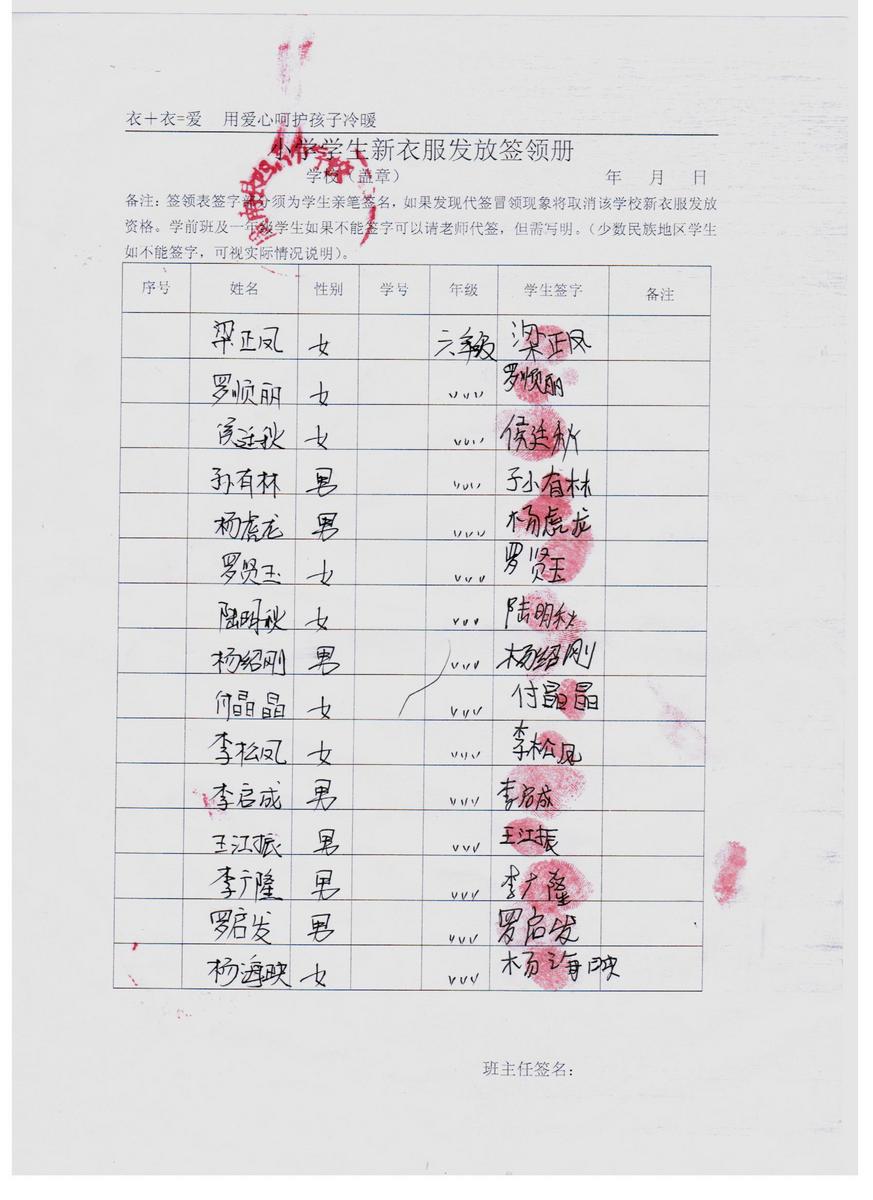 衣+衣=爱 用爱心呵护孩子冷暖
小学学生新衣服发放签领册
学校（盖章） 年 月 日
备注：签领表签字部分须为学生亲笔签名，如果发现代签冒领现象将取消该学校新衣服发放
资格。学前班及一年级学生如果不能签字可以请老师代签，但需写明。（少数民族地区学生
如不能签字，可视实际情况说明）。
序号 姓名 性别 学号 年级 学生签字 备注
梁正凤 女 六年级 梁正凤
罗顺丽 女 〃 罗顺丽
侯廷秋 女 〃 侯廷秋
孙有林 男 〃 孙有林
杨虎龙 男 〃 杨虎龙
罗贤玉 女 〃 罗贤玉
陆明秋 女 〃 陆明秋
杨绍刚 男 〃 杨绍刚
付晶晶 女 〃 付晶晶
李松凤 女 〃 李松凤
李启成 男 〃 李启成
王江振 男 〃 王江振
李广隆 男 〃 李广隆
罗启发 男 〃 罗启发
杨海映 女 〃 杨海映
班主任签名：